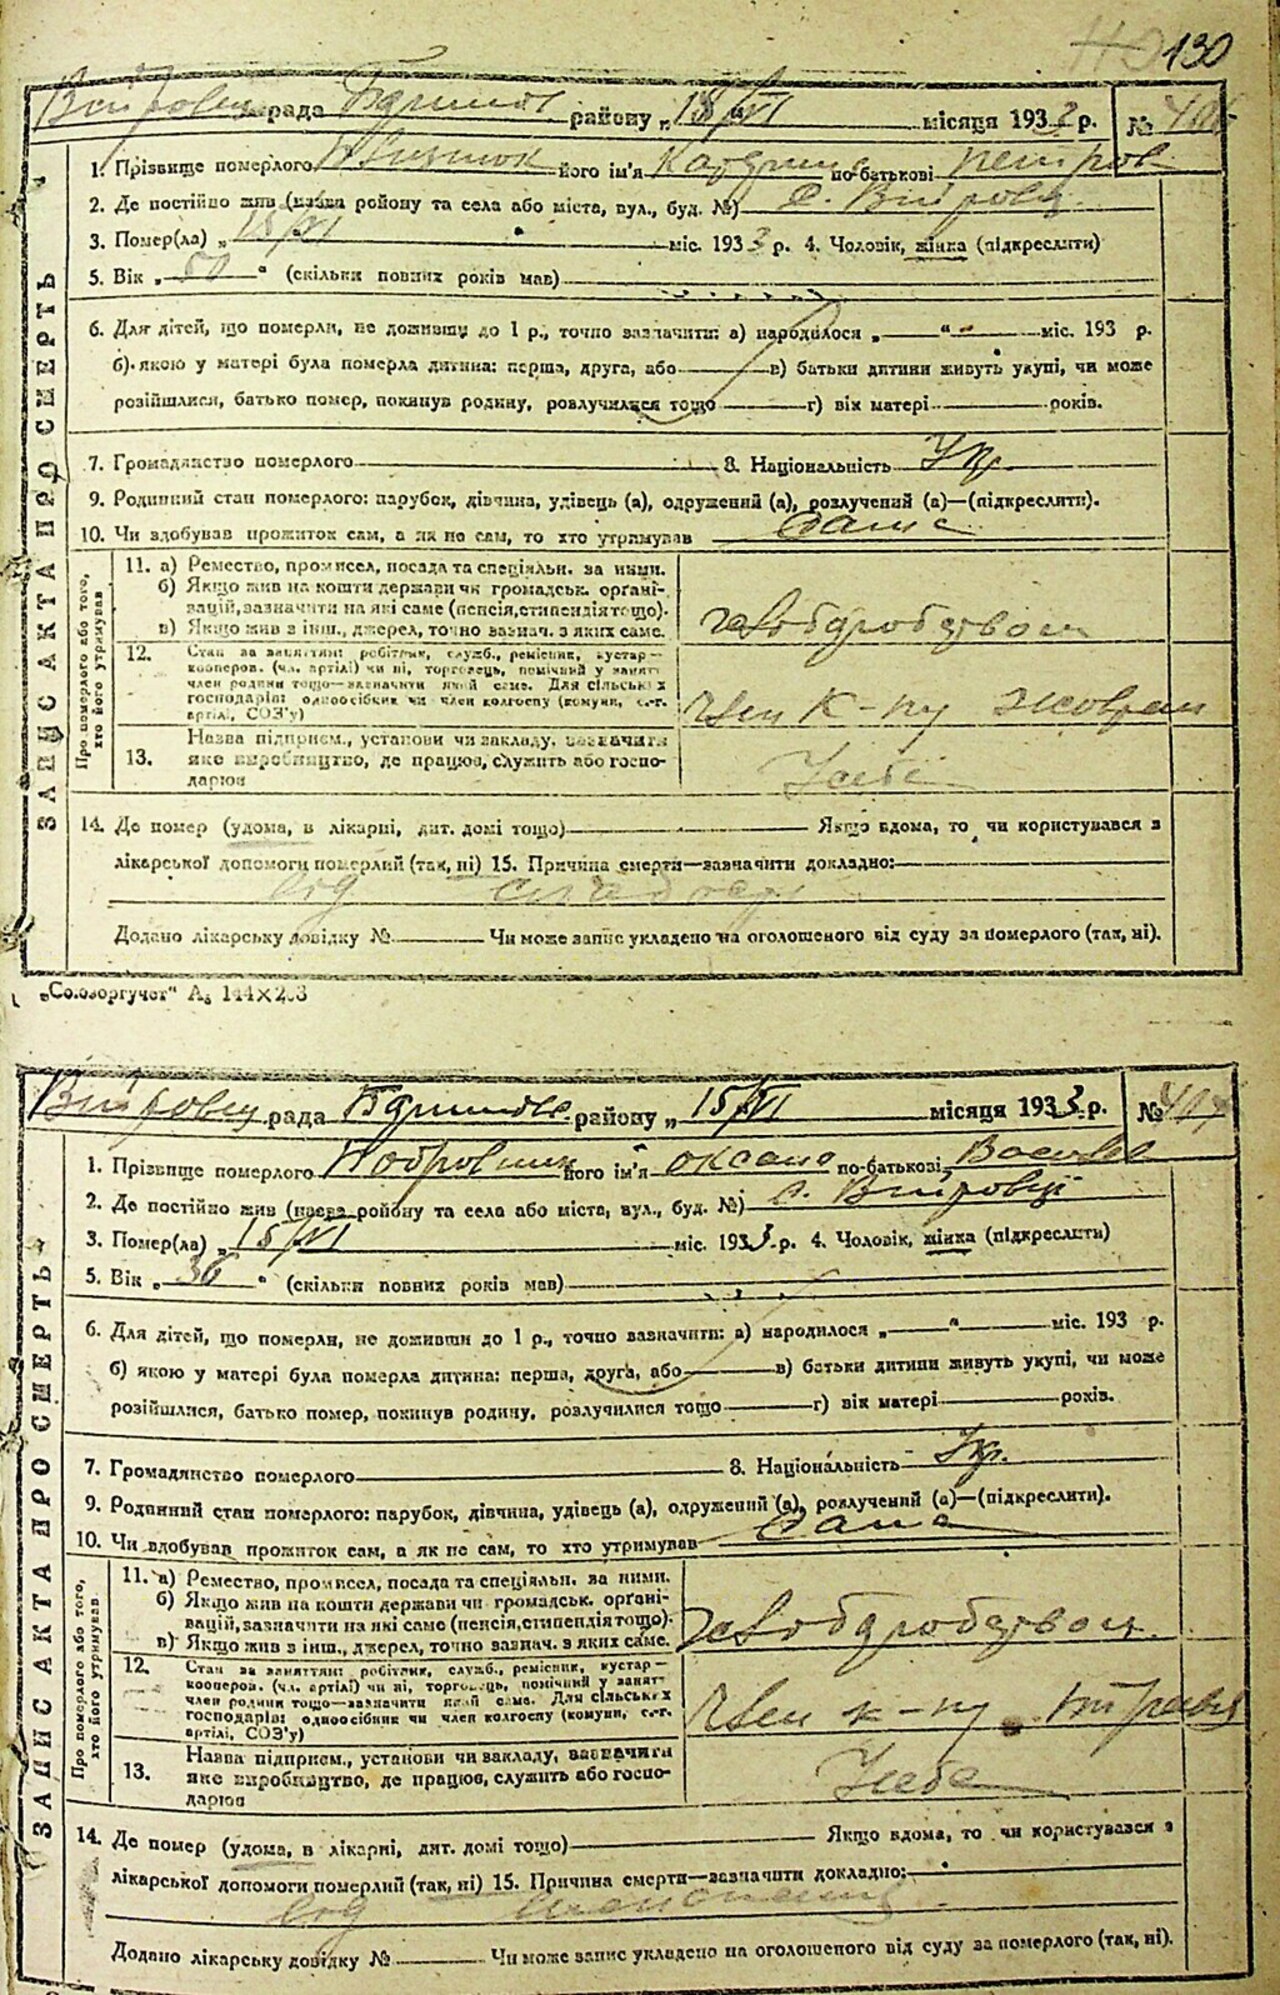 130
рада району „ 15/VI місяця 1933 р. №
1. Прізвище померлого його ім'я по-батькові Петров
2. Де постійно жив (назва району та села або міста, вул., буд. №) с. Вітровц
3. Помер(ла) „ 15/VI міс. 1933 р. 4. Чоловік, жінка (підкреслити)
5. Вік „ “ (скільки повних років мав)
6. Для дітей, що померли, не доживши до 1 р., точно зазначити: а) народилося „ “ міс. 193 р.
б) якою у матері була померла дитина: перша, друга, або в) батьки дитини живуть укупі, чи може
розійшлися, батько помер, покинув родину, розлучилися тощо г) вік матері років.
7. Громадянство померлого 8. Національність Укр.
9. Родинний стан померлого: парубок, дівчина, удівець (а), одружений (а), розлучений (а)—(підкреслити).
10. Чи здобував прожиток сам, а як не сам, то хто утримував сама
ЗАПИС АКТА ПРО СМЕРТЬ
Про померлого або того, хто його утримував
11. а) Ремество, промисел, посада та спеціяльн. за ними.
б) Якщо жив на кошти держави чи громадськ. орґані-
зацій, зазначити на які саме (пенсія, стипендія тощо).
в) Якщо жив з інш., джерел, точно зазнач. з яких саме.
хліборобством
12. Стан за заняттям: робітник, служб., ремісник, кустар—
кооперов. (чл. артілі) чи ні, торговець, помічний у занятт
член родини тощо—зазначити який саме. Для сільських
господарів: одноосібник чи член колгоспу (комуни, с.-г.
артілі, СОЗ'у)
член к-пу
13. Назва підприєм., установи чи закладу, зазначити
яке виробництво, де працює, служить або госпо-
дарює
У себе
14. Де помер (удома, в лікарні, дит. домі тощо) Якщо вдома, то чи користувався з
лікарської допомоги померлий (так, ні) 15. Причина смерти—зазначити докладно:
від
Додано лікарську довідку № Чи може запис укладено на оголошеного від суду за померлого (так, ні).
„Союзоргучет“ А₅ 144×203
рада району „ 15/VI місяця 1933 р. № 407
1. Прізвище померлого його ім'я Оксана по-батькові
2. Де постійно жив (назва району та села або міста, вул., буд. №) с. Вітровці
3. Помер(ла) „ 15/VI міс. 1933 р. 4. Чоловік, жінка (підкреслити)
5. Вік „ 36 “ (скільки повних років мав)
6. Для дітей, що померли, не доживши до 1 р., точно зазначити: а) народилося „ “ міс. 193 р.
б) якою у матері була померла дитина: перша, друга, або в) батьки дитини живуть укупі, чи може
розійшлися, батько помер, покинув родину, розлучилися тощо г) вік матері років.
7. Громадянство померлого 8. Національність Укр.
9. Родинний стан померлого: парубок, дівчина, удівець (а), одружений (а), розлучений (а)—(підкреслити).
10. Чи здобував прожиток сам, а як не сам, то хто утримував сама
ЗАПИС АКТА ПРО СМЕРТЬ
Про померлого або того, хто його утримував
11. а) Ремество, промисел, посада та спеціяльн. за ними.
б) Якщо жив на кошти держави чи громадськ. орґані-
зацій, зазначити на які саме (пенсія, стипендія тощо).
в) Якщо жив з інш., джерел, точно зазнач. з яких саме.
хліборобством
12. Стан за заняттям: робітник, служб., ремісник, кустар—
кооперов. (чл. артілі) чи ні, торговець, помічний у занятт
член родини тощо—зазначити який саме. Для сільських
господарів: одноосібник чи член колгоспу (комуни, с.-г.
артілі, СОЗ'у)
член к-пу
13. Назва підприєм., установи чи закладу, зазначити
яке виробництво, де працює, служить або госпо-
дарює
У себе
14. Де помер (удома, в лікарні, дит. домі тощо) Якщо вдома, то чи користувався з
лікарської допомоги померлий (так, ні) 15. Причина смерти—зазначити докладно:
від
Додано лікарську довідку № Чи може запис укладено на оголошеного від суду за померлого (так, ні).